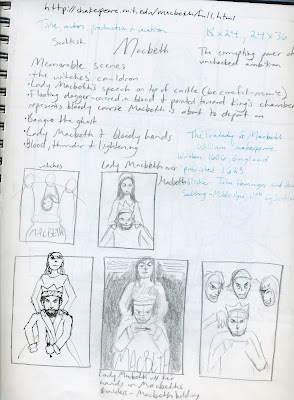 http://shakespeare.mit.edu/macbeth/full.html
Time, actors, production + location
18x24, 24x36
Scottish
Macbeth
The corrupting power of
unchecked ambition
Memorable scenes
•the witches cauldron
•Lady Macbeth's speech on top of castle (be careful-movie)
•Floating dagger-covered in blood & pointed toward King's chamber
represents bloody course Macbeth is about to depart on
•Banquo the ghost
•Lady Macbeth & bloody hands
•Blood, thunder & lightening
The Tradedy of Macbeth
William Shakespeare
written 1606 England
published 1623
Publisher: John Heminges and
Setting- Middle Ages, 11th Scotland
witches
Lady Macbeth over
Macbeth
MACBETH
Lady Macbeth w/ her
hands on Macbeth's
shoulders-Macbeth holding